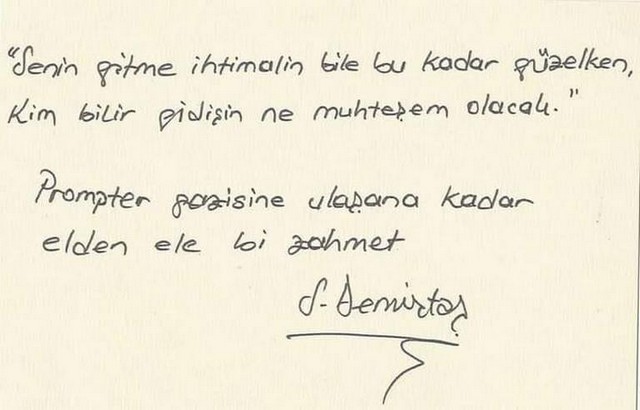 "Senin gitme ihtimalin bile bu kadar güzelken,
Kim bilir gidişin ne muhteşem olacak."
Prompter gazisine ulaşana kadar
elden ele bi zahmet
S. Demirtaş